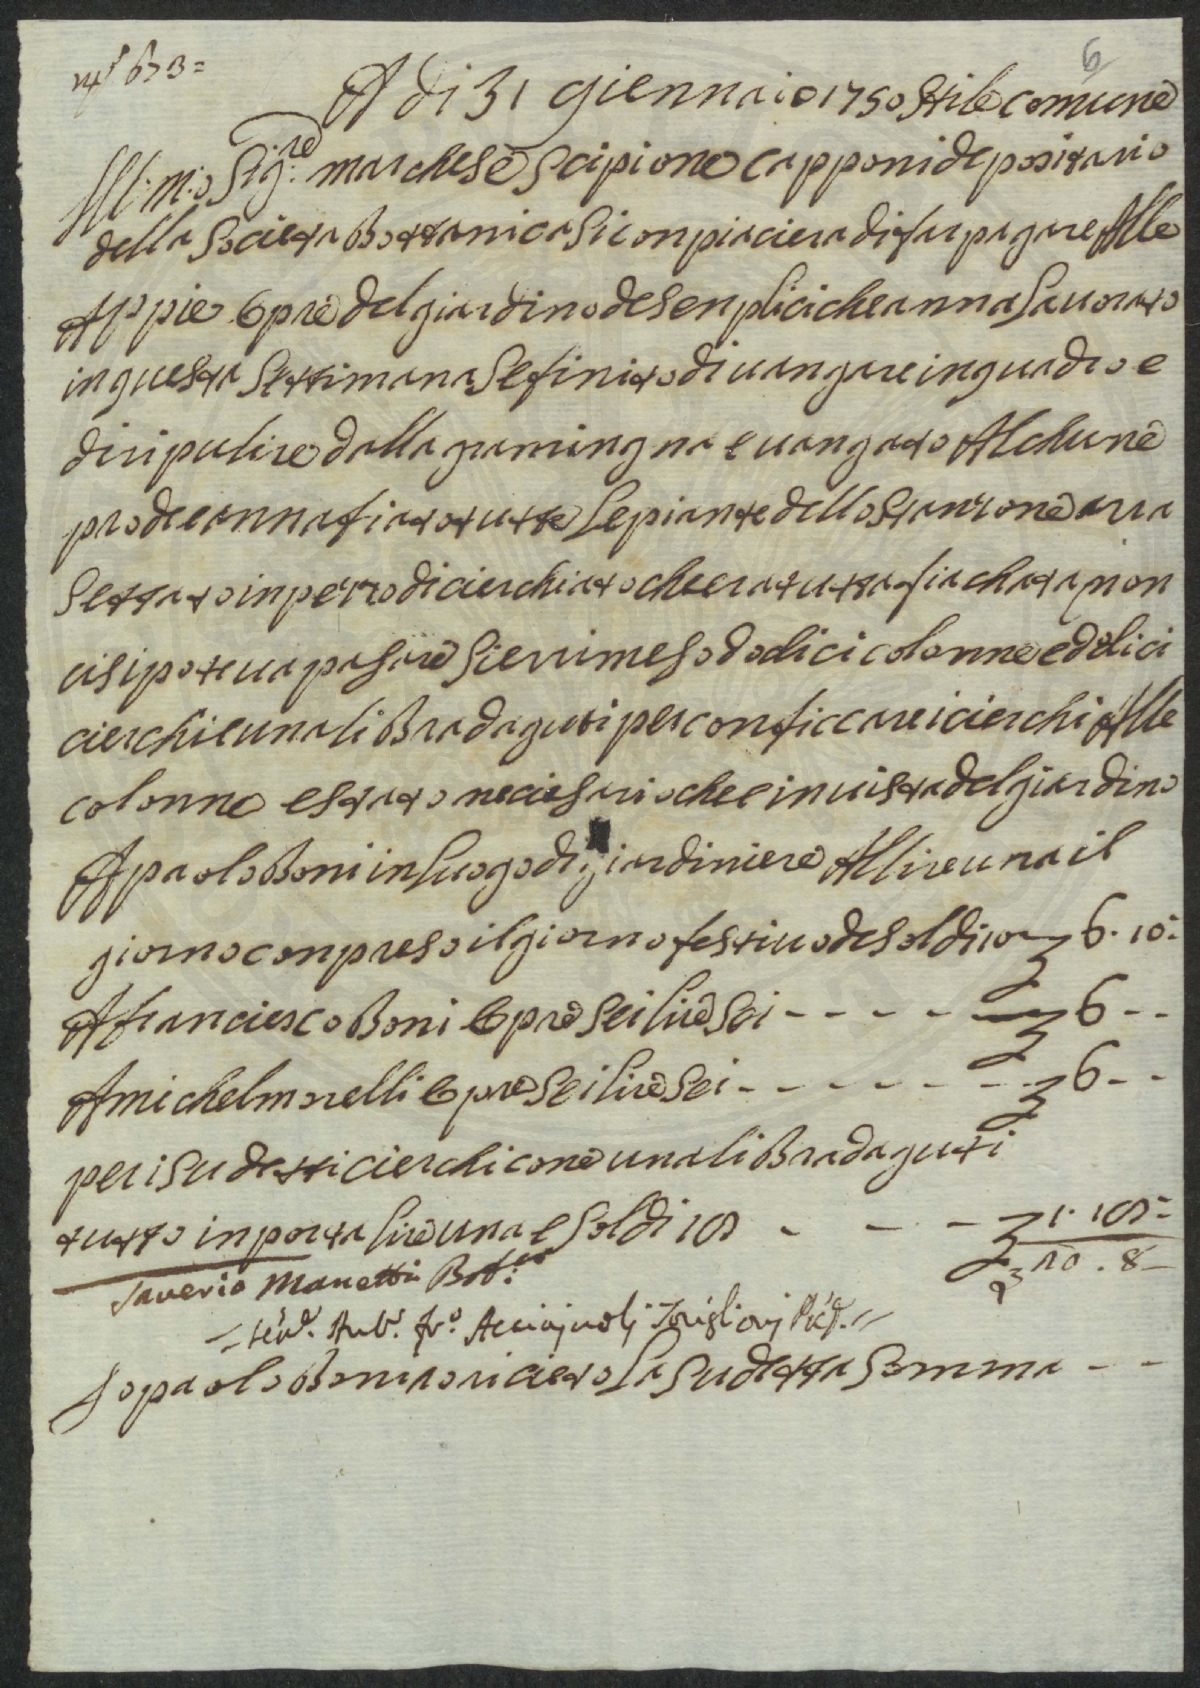 6
A di 31 giennaio 1750 Stile comune
Ill.m.o Sig.re marchese Scipione Capponi depositario
della Societa Bottanica Si conpiaciera di far pagare Alle
Appie Opre del giardino de senplici che anna Lauorato
in questa Settimana Se finito di uangare in quadro e
di ripulire dalla gramingna e uangato Alchune
prode e annafiato tutte Le piante dello Stanzone
Settato in pezzo di cierchiato che era tutta fiachata, non
ci si poteua pasare Si e rimeso dodici colonne e dodici
cierchi e una liBra daguti per conficcare i cierchi Alle
colonne e stato neciesario che e in uista del giardino
A paolo Boni in Luogo di giardiniere A lire una il
giorno conpreso il giorno festiuo de soldi 10 6. 10:
A franciesco Boni Opre Sei Lire Sei - - - - - 6 - -
A michel morelli Opre Sei lire Sei - - - - - - 6 - -
per i Sudetti cierchi cone una liBra daguti
tutto inporta Lire una e Soldi 18 - - - 1. 18:
Saverio Manetti Bot.co 20. 8 -
Acciajuoli
Io paolo Boni o riceuto La Sudetta Somma - -